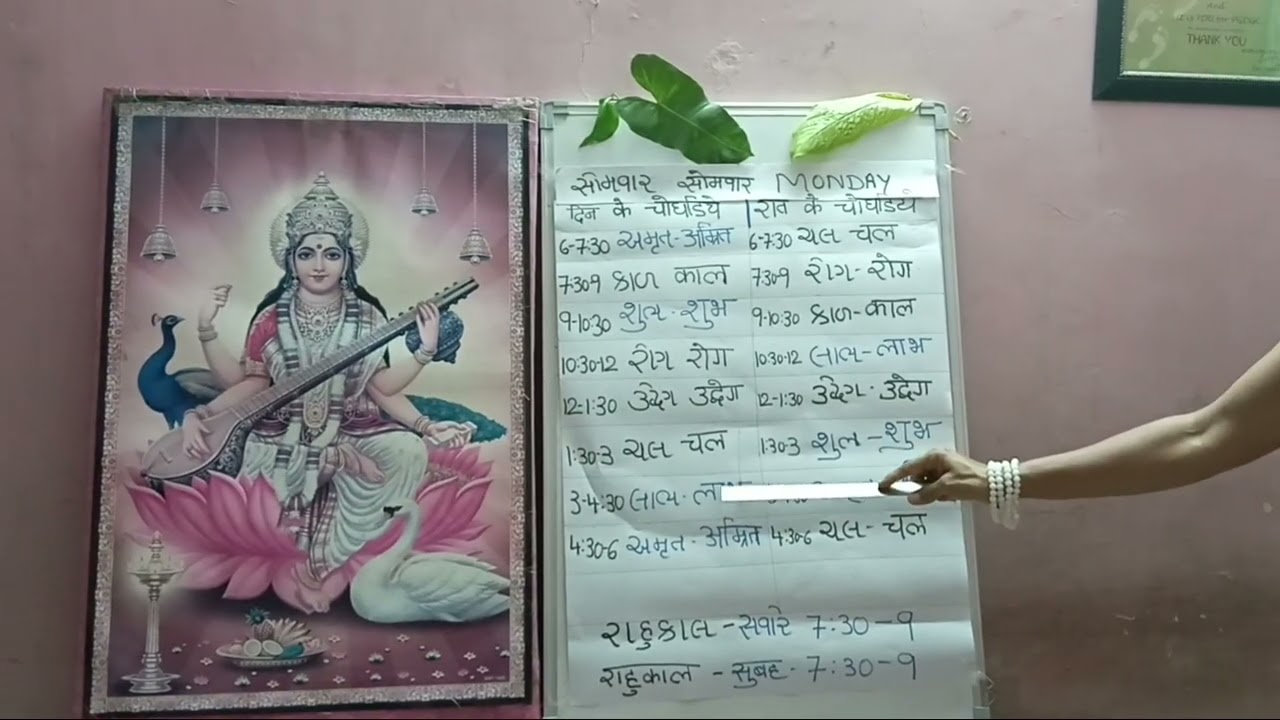 THANK YOU
સોમવાર सोमवार MONDAY
दिन के चोघडिये | रात के चोघडिये
6-7:30 અમૃત-अम्रित 6-7:30 ચલ चल
7:30-9 કાળ काल 7:30-9 રોગ-रोग
9-10:30 શુભ-शुभ 9-10:30 કાળ-काल
10:30-12 રોગ रोग 10:30-12 લાભ-लाभ
12-1:30 ઉદ્વેગ उद्वेग 12-1:30 ઉદ્વેગ-उद्वेग
1:30-3 ચલ चल 1:30-3 શુભ-शुभ
3-4:30 લાભ-लाभ
4:30-6 અમૃત-अम्रित 4:30-6 ચલ-चल
રાહુકાલ - સવારે 7:30-9
राहुकाल - सुबह - 7:30-9